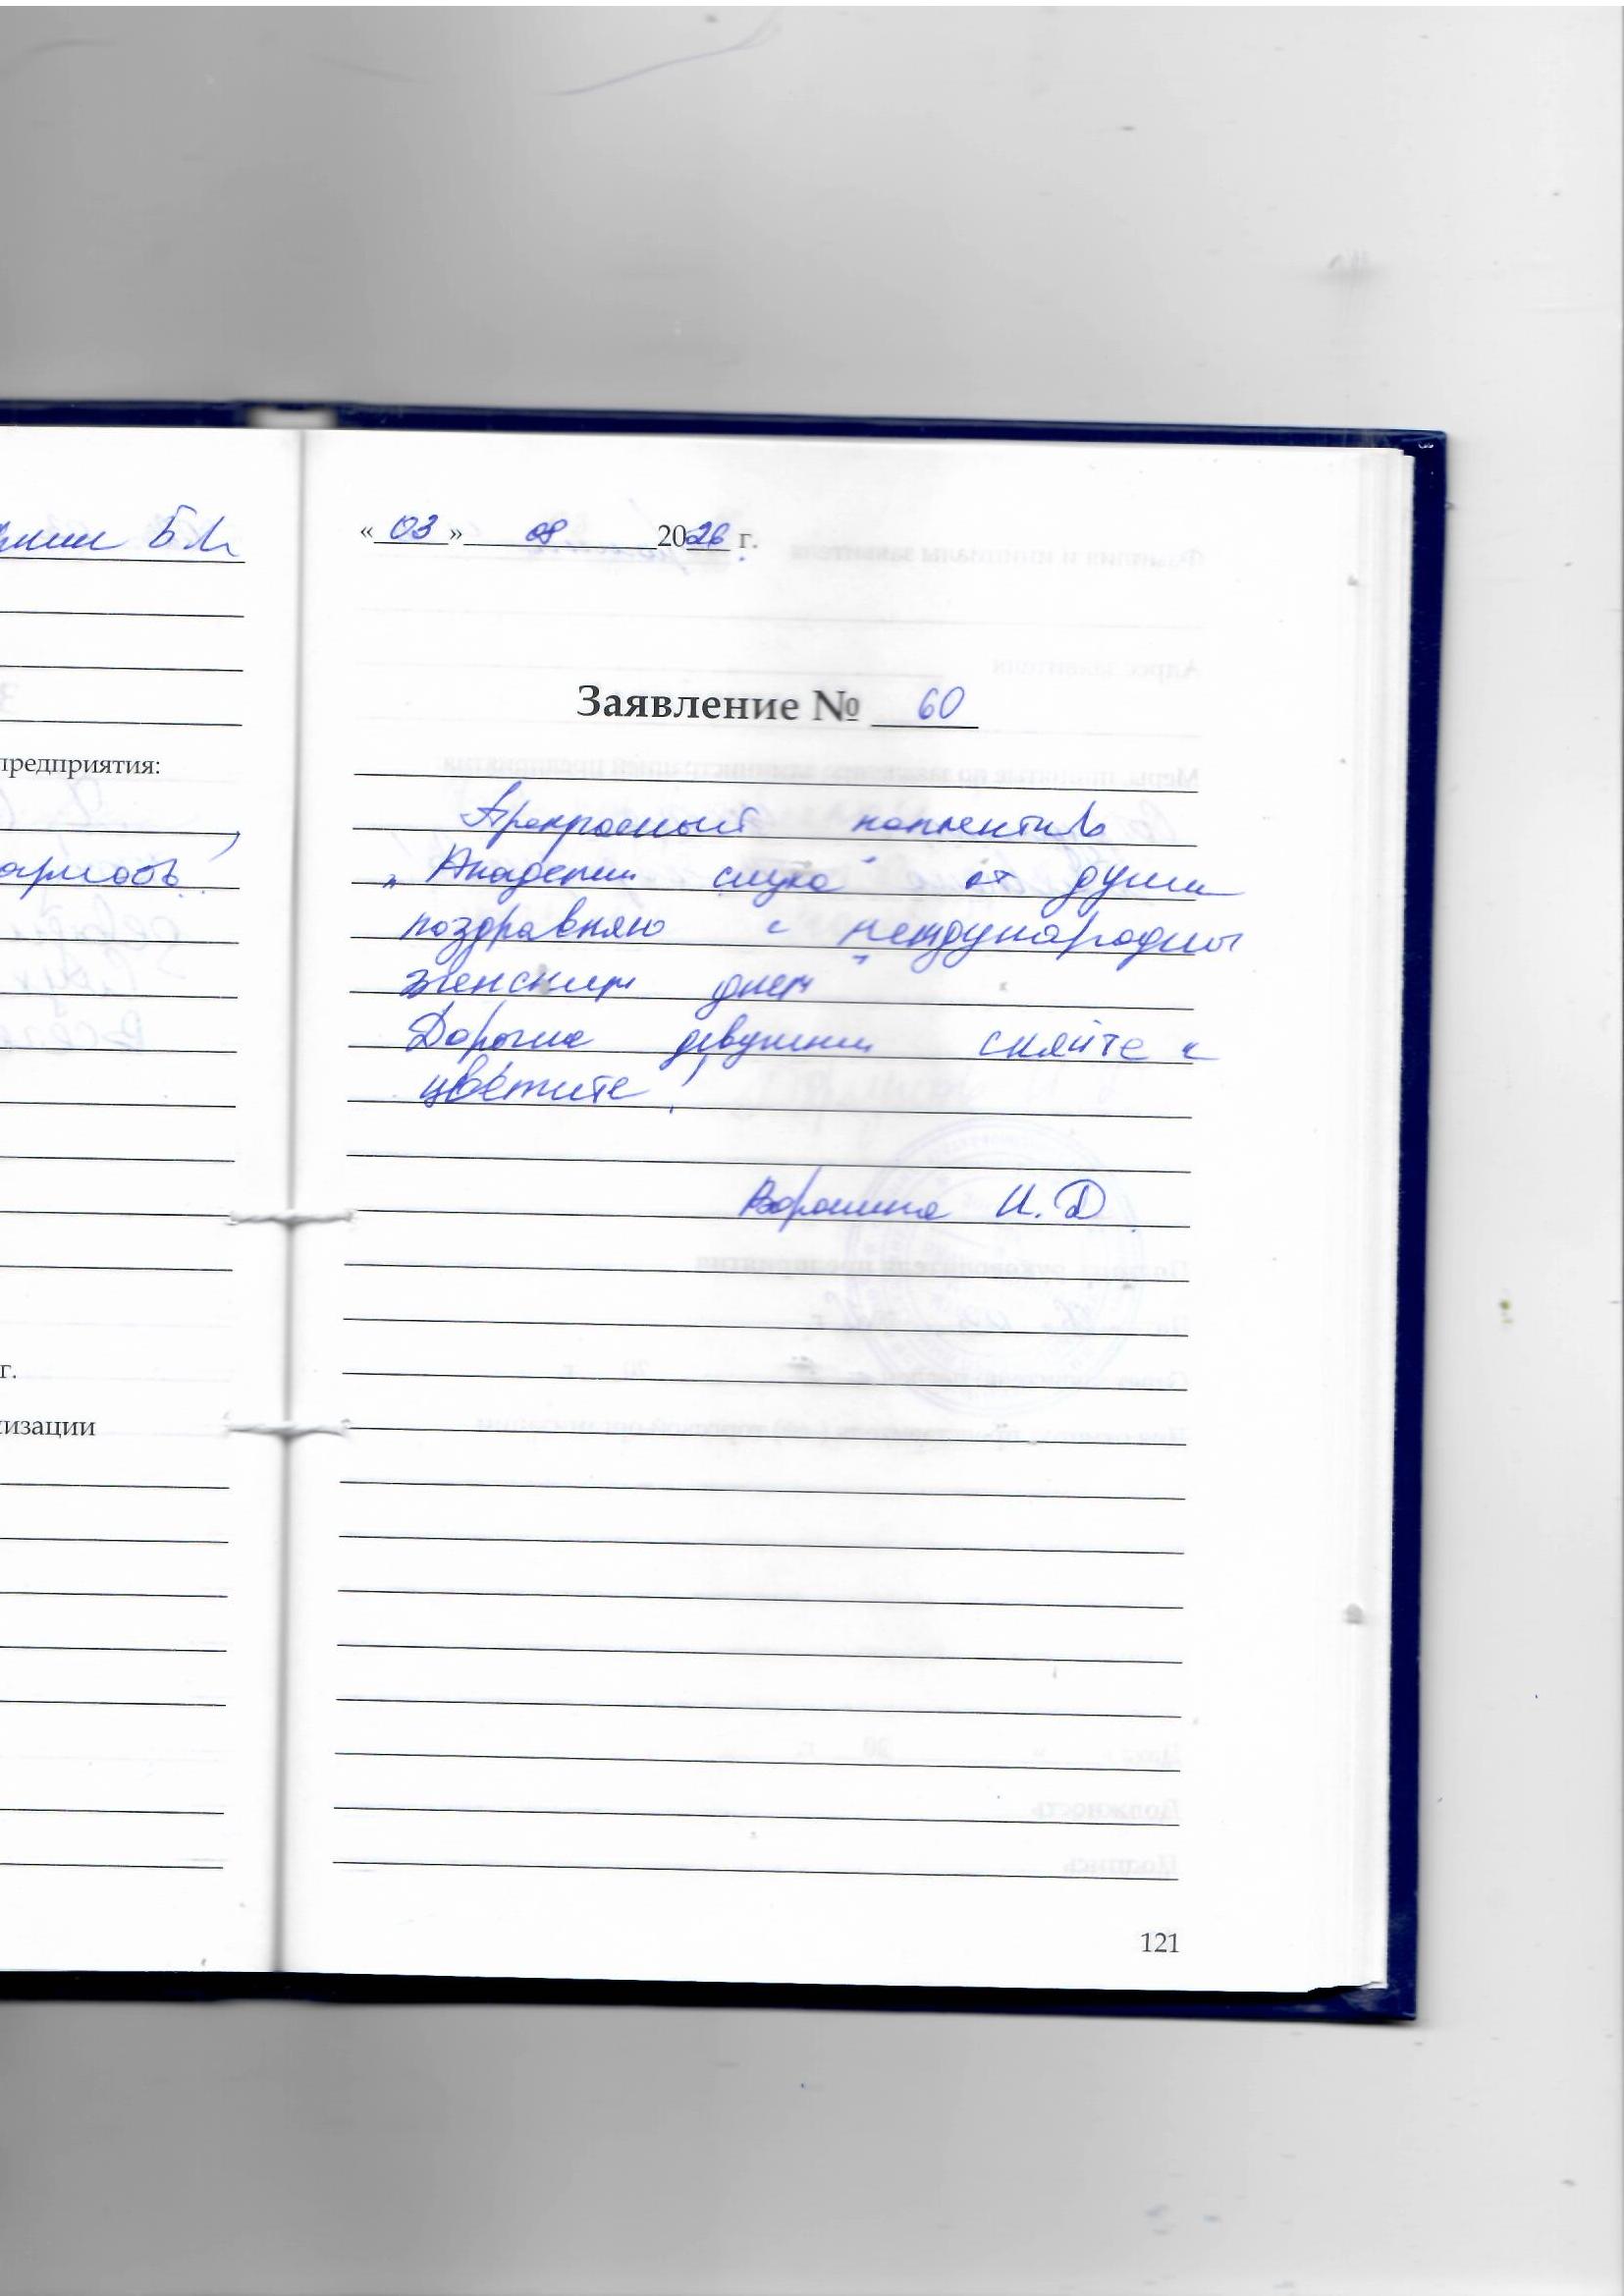 Б.И.
предприятия:
г.
изации
«03» 08 2026 г.
Заявление № 60
Прекрасный коллектив
„Академии слуха" от души
поздравляю с международным
женским днем
Дорогие девушки сияйте и
цветите!
Воронина И. Д.
121